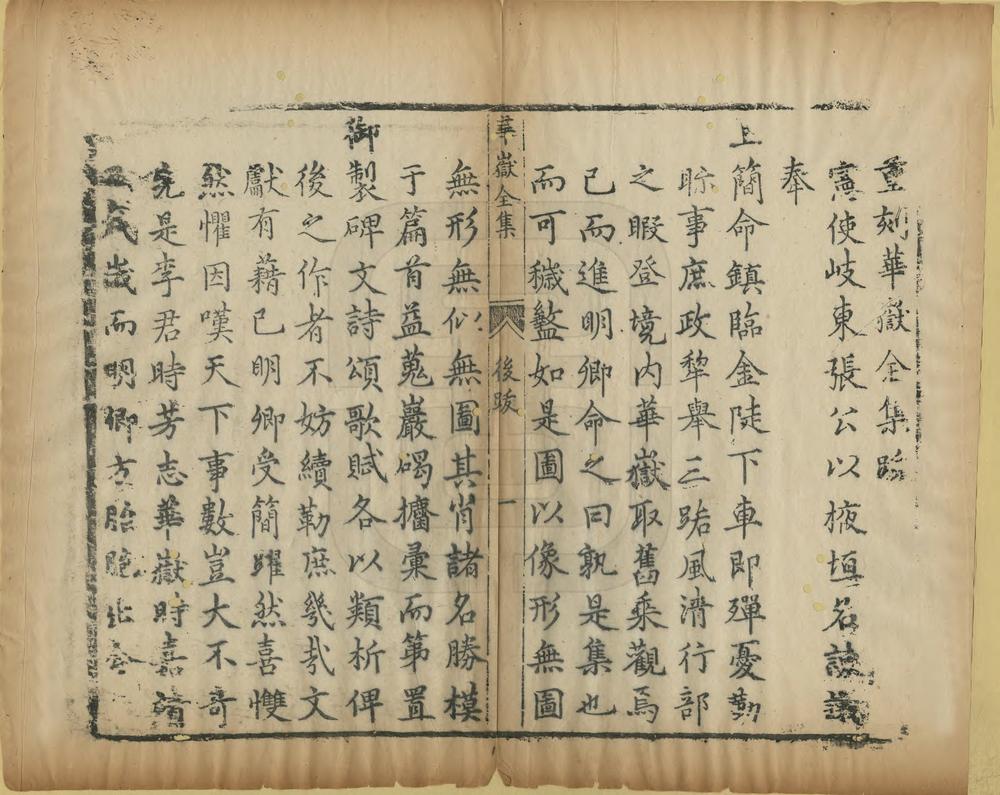 重刻華嶽全集跋
憲使岐東張公以掖垣名諫
奉
上簡命鎮臨金陡下車即殫憂勤
眎事庶政犂舉三跖風淸行部
之暇登境內華嶽取舊乘觀焉
已而進明卿命之曰孰是集也
而可穢盭如是圖以像形無圖
華嶽全集
後跋
一
無形無似無圖其肖諸名勝模
于篇首益蒐巖碣攟彙而第置
御製碑文詩頌歌賦各以類析俾
後之作者不妨續勒庶幾哉文
獻有藉已明卿受簡躍然喜懼
然懼因嘆天下事數豈大不奇
先是李君時芳志華嶽時嘉靖
歲而明卿方胎